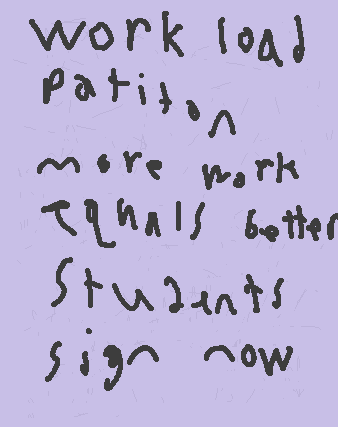 work load
Patiton
more work
Equals better
students
sign now